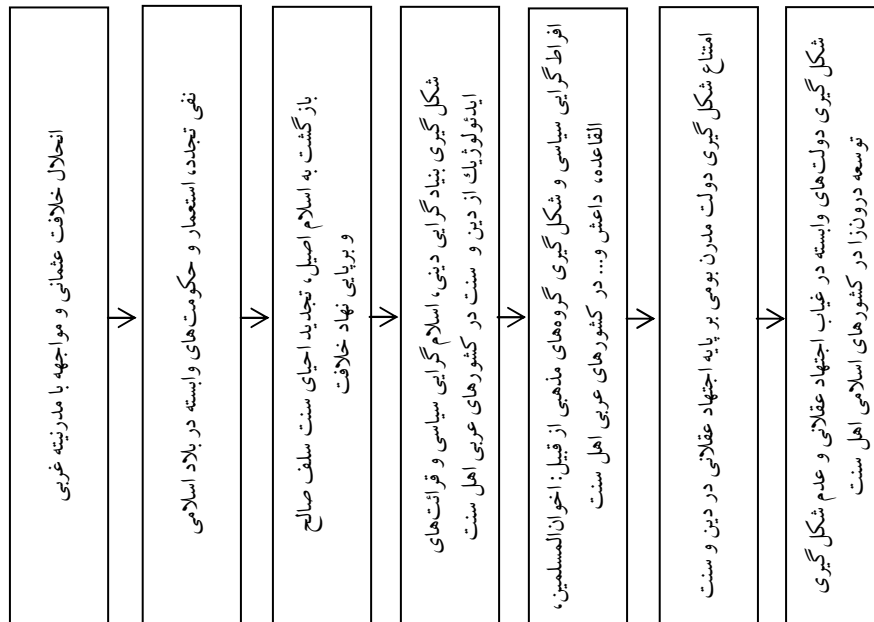 انحلال خلافت عثمانی و مواجهه با مدرنیته غربی
نفی تجدد، استعمار و حکومت‌های وابسته در بلاد اسلامی
بازگشت به اسلام اصیل، تجدید احیای سنت سلف صالح
و برپایی نهاد خلافت
شکل گیری بنیادگرایی دینی، اسلام گرایی سیاسی و قرائت‌های
ایدئولوژیك از دین و سنت در کشورهای عربی اهل سنت
افراط گرایی سیاسی و شکل گیری گروه‌های مذهبی از قبیل: اخوان‌المسلمین،
القاعده، داعش و... در کشورهای عربی اهل سنت
امتناع شکل گیری دولت مدرن بومی بر پایه اجتهاد عقلانی در دین و سنت
شکل گیری دولت‌های وابسته در غیاب اجتهاد عقلانی و عدم شکل گیری
توسعه درون‌زا در کشورهای اسلامی اهل سنت